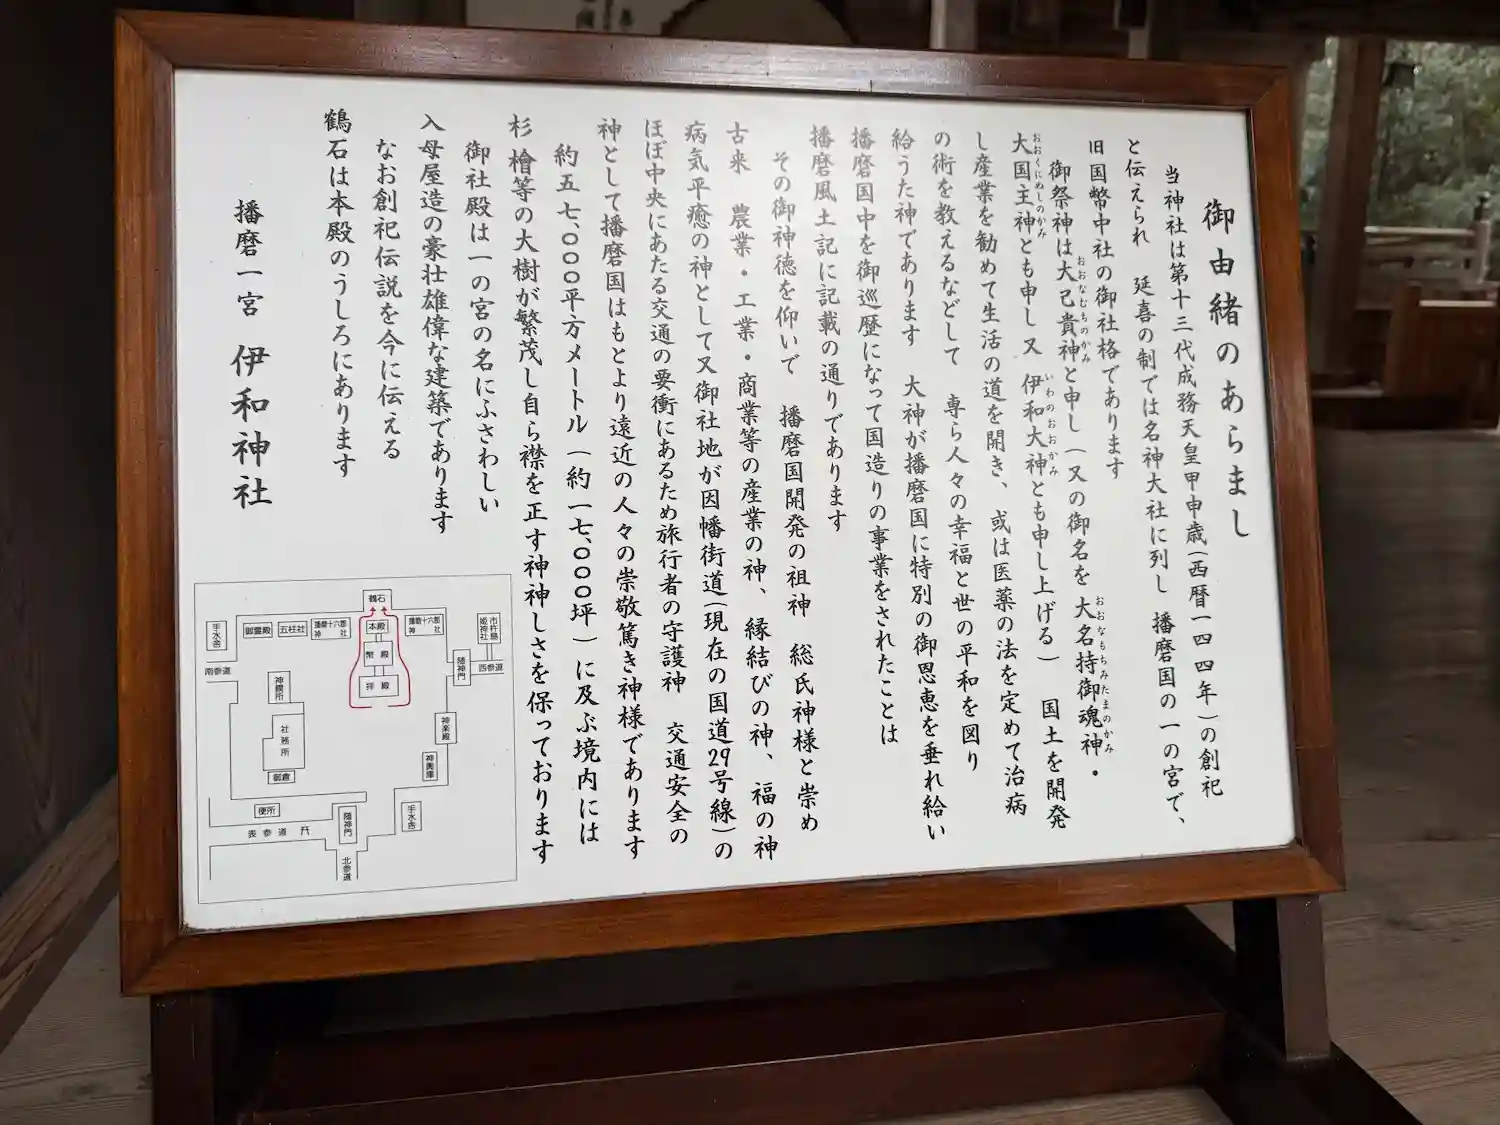 御由緒のあらまし
当神社は第十三代成務天皇甲申歳(西暦一四四年)の創祀
と伝えられ 延喜の制では名神大社に列し 播磨国の一の宮で、
旧国幣中社の御社格であります
御祭神は大己貴神と申し(又の御名を 大名持御魂神・
おおなむちのかみ
おおなもちみたまのかみ
大国主神とも申し又 伊和大神とも申し上げる) 国土を開発
おおくにぬしのかみ
いわのおおかみ
し産業を勧めて生活の道を開き、或は医薬の法を定めて治病
の術を教えるなどして 専ら人々の幸福と世の平和を図り
給うた神であります 大神が播磨国に特別の御恩恵を垂れ給い
播磨国中を御巡歴になって国造りの事業をされたことは
播磨風土記に記載の通りであります
その御神徳を仰いで 播磨国開発の祖神 総氏神様と崇め
古来 農業・工業・商業等の産業の神、縁結びの神、福の神
病気平癒の神として又御社地が因幡街道(現在の国道29号線)の
ほぼ中央にあたる交通の要衝にあるため旅行者の守護神 交通安全の
神として播磨国はもとより遠近の人々の崇敬篤き神様であります
約五七、〇〇〇平方メートル(約一七、〇〇〇坪)に及ぶ境内には
杉 檜等の大樹が繁茂し自ら襟を正す神神しさを保っております
御社殿は一の宮の名にふさわしい
入母屋造の豪壮雄偉な建築であります
なお創祀伝説を今に伝える
鶴石は本殿のうしろにあります
播磨一宮 伊和神社
鶴石
手水舎
御霊殿
五柱社
播磨十六郡神社
本殿
播磨十六郡神社
市杵島姫神社
幣殿
拝殿
南参道
随神門
西参道
神饌所
社務所
御倉
神楽殿
神輿庫
便所
手水舎
随神門
表参道
北参道